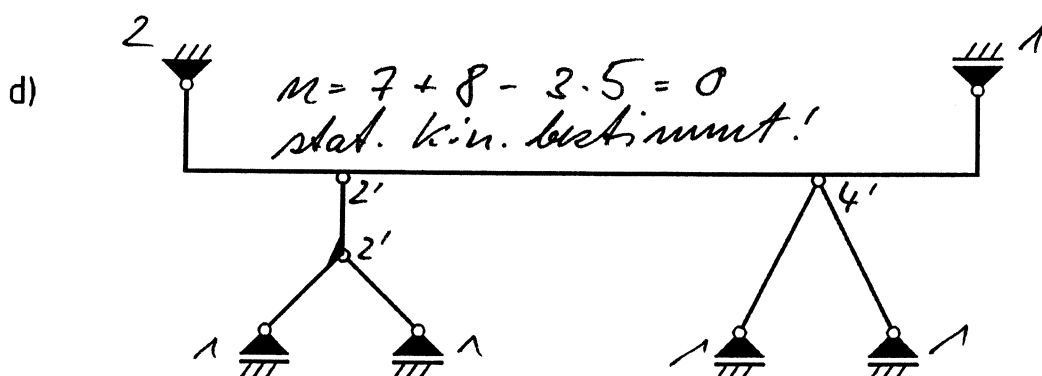 2
1
d)
n = 7 + 8 - 3·5 = 0
stat. kin. bestimmt!
2'
4'
2'
1
1
1
1